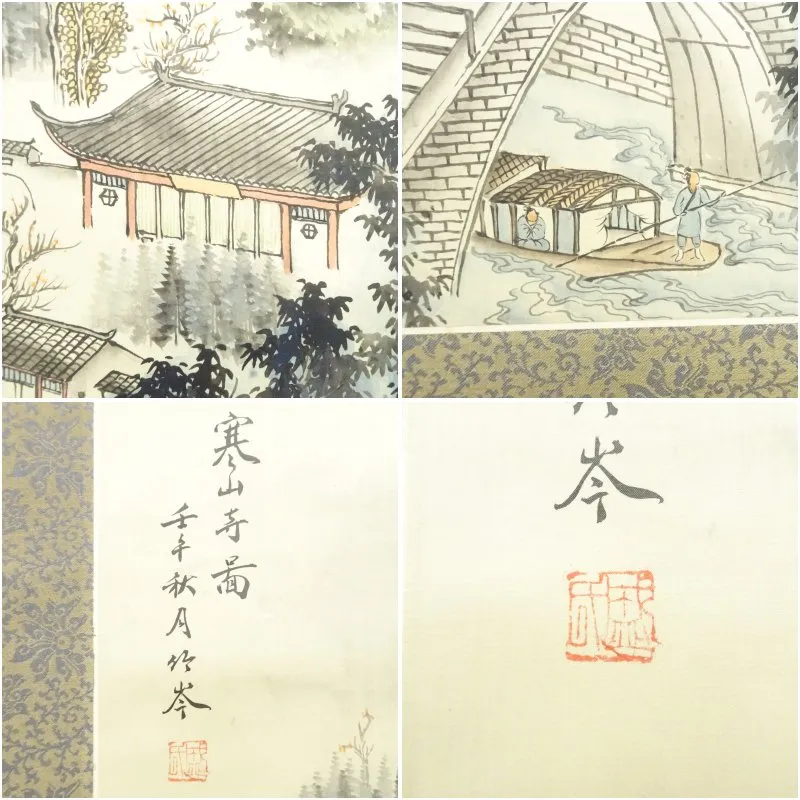 寒山寺圖
壬午秋月竹岑
岑